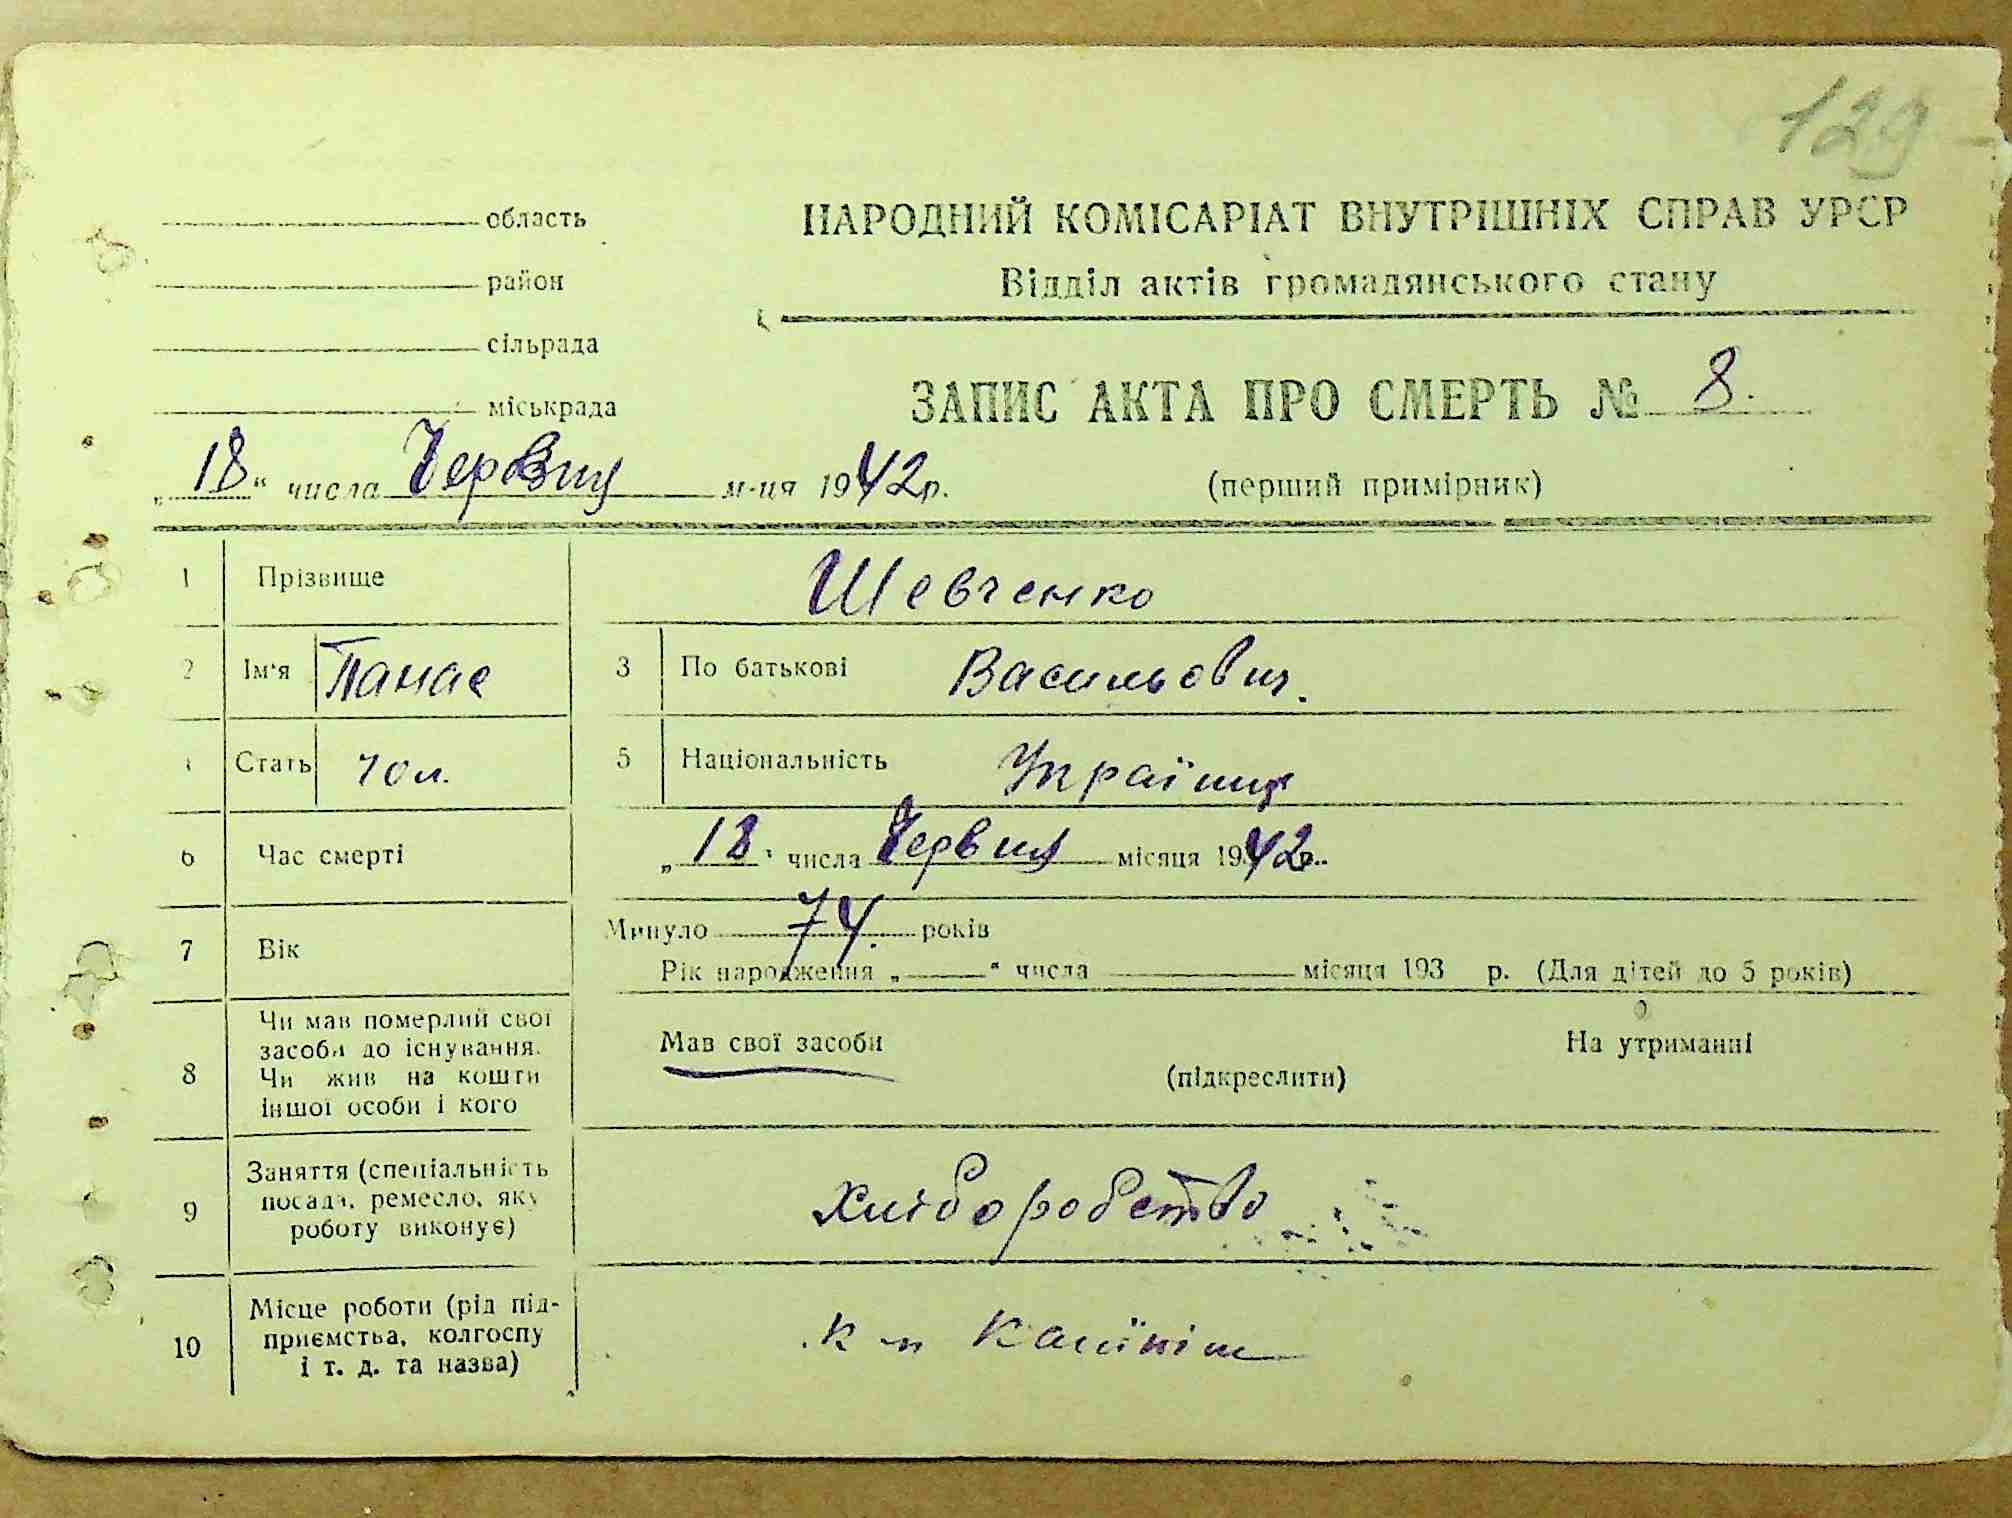 129
область
район
сільрада
міськрада
НАРОДНИЙ КОМІСАРІАТ ВНУТРІШНІХ СПРАВ УРСР
Відділ актів громадянського стану
ЗАПИС АКТА ПРО СМЕРТЬ № 8.
„18“ числа Червня м-ця 1942р.
(перший примірник)
1 Прізвище Шевченко
2 Ім'я Панас 3 По батькові Васильович.
4 Стать чол. 5 Національність Українц
6 Час смерті „18“ числа Червня місяця 1942р.
7 Вік Минуло 74. років
Рік народження „ “ числа місяця 193 р. (Для дітей до 5 років)
8 Чи мав померлий свої
засоби до існування.
Чи жив на кошти
іншої особи і кого
Мав свої засоби На утриманні
(підкреслити)
9 Заняття (спеціальність
посада, ремесло, яку
роботу виконує)
Хліборобство
10 Місце роботи (рід під-
приємства, колгоспу
і т. д. та назва)